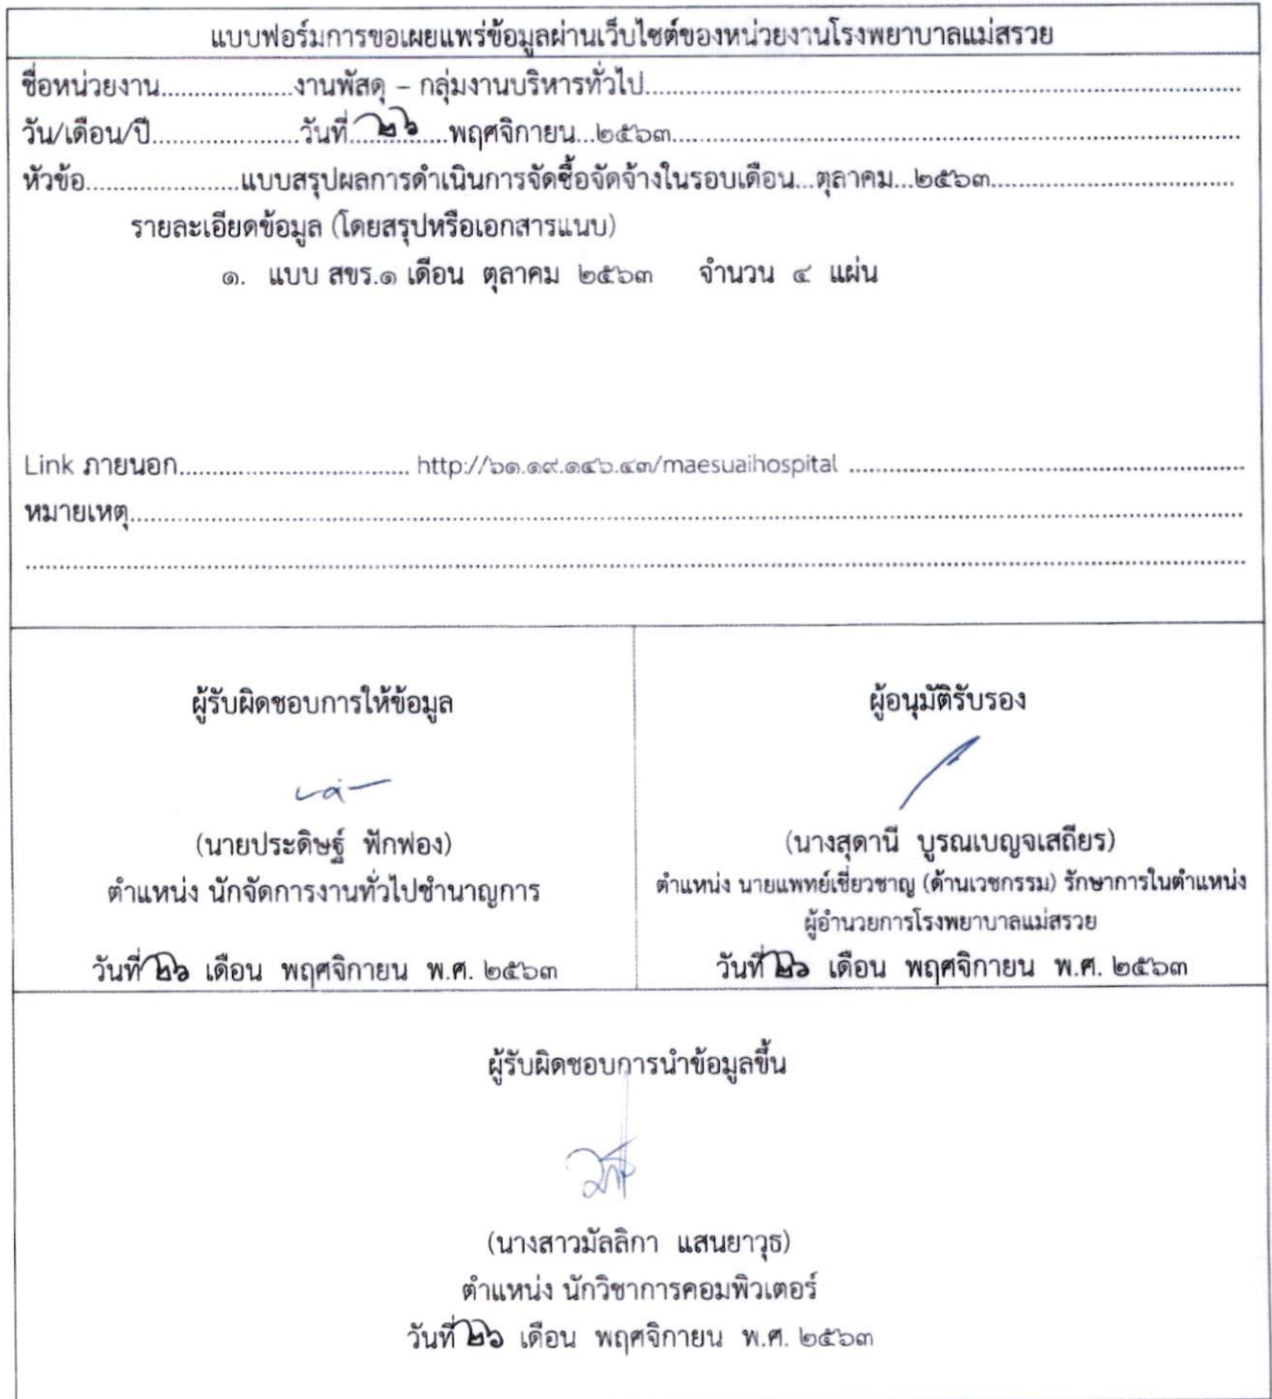 แบบฟอร์มการขอเผยแพร่ข้อมูลผ่านเว็บไซต์ของหน่วยงานโรงพยาบาลแม่สรวย
ชื่อหน่วยงาน....................งานพัสดุ – กลุ่มงานบริหารทั่วไป..........................................................................................
วัน/เดือน/ปี......................วันที่...๒๖...พฤศจิกายน...๒๕๖๓......................................................................................
หัวข้อ.......................แบบสรุปผลการดำเนินการจัดซื้อจัดจ้างในรอบเดือน...ตุลาคม...๒๕๖๓....................................
รายละเอียดข้อมูล (โดยสรุปหรือเอกสารแนบ)
๑. แบบ สขร.๑ เดือน ตุลาคม ๒๕๖๓ จำนวน ๔ แผ่น
Link ภายนอก.................................. http://๖๑.๑๙.๑๔๖.๔๓/maesuaihospital ...........................................................
หมายเหตุ......................................................................................................................................................................
ผู้รับผิดชอบการให้ข้อมูล
(นายประดิษฐ์ ฟักฟอง)
ตำแหน่ง นักจัดการงานทั่วไปชำนาญการ
วันที่ ๒๖ เดือน พฤศจิกายน พ.ศ. ๒๕๖๓
ผู้อนุมัติรับรอง
(นางสุดานี บูรณเบญจเสถียร)
ตำแหน่ง นายแพทย์เชี่ยวชาญ (ด้านเวชกรรม) รักษาการในตำแหน่ง
ผู้อำนวยการโรงพยาบาลแม่สรวย
วันที่ ๒๖ เดือน พฤศจิกายน พ.ศ. ๒๕๖๓
ผู้รับผิดชอบการนำข้อมูลขึ้น
(นางสาวมัลลิกา แสนยาวุธ)
ตำแหน่ง นักวิชาการคอมพิวเตอร์
วันที่ ๒๖ เดือน พฤศจิกายน พ.ศ. ๒๕๖๓